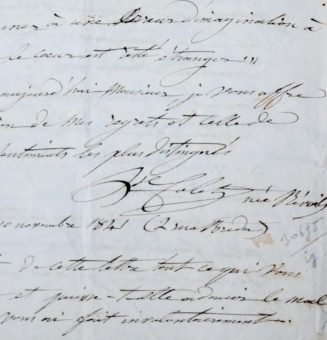 à une erreur d'imagination à
le cœur est resté étranger »
aujourd'hui Monsieur je vous offre
de mes regrets et celle de
sentiments les plus distingués
Colet née Révoil
10 novembre 1841 (2 rue Bréda)
de cette lettre tout ce qui vous
et puisse-t-elle adoucir le mal
vous ai fait involontairement.